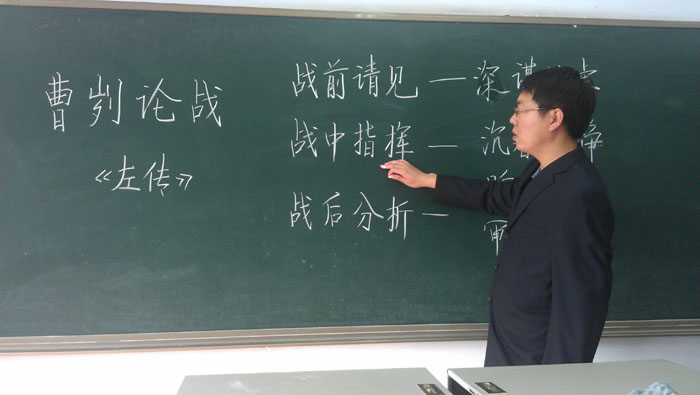 曹刿论战
«左传»
战前请见 — 深谋
战中指挥 — 沉
战后分析 —